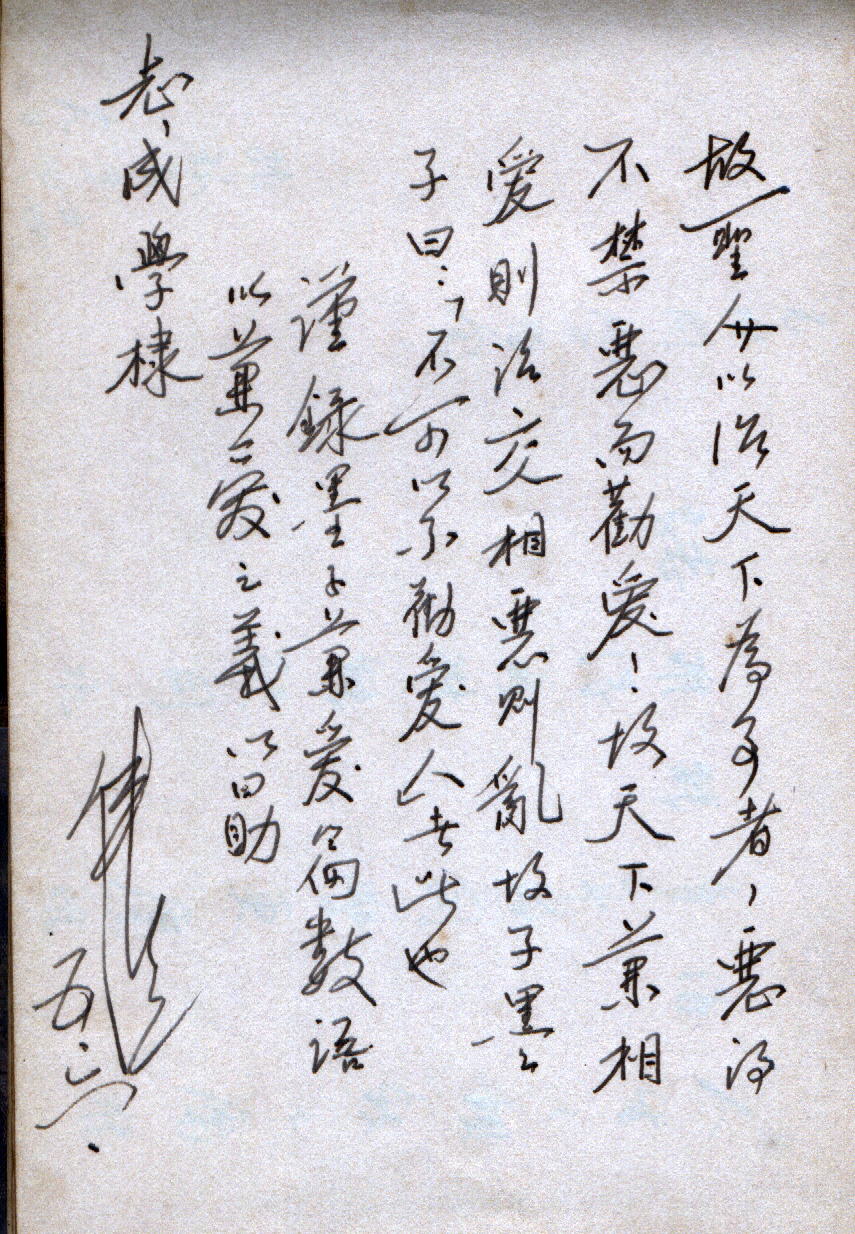 故聖人以治天下為事者，惡得
不禁惡而勸愛！故天下兼相
愛則治交相惡則亂故子墨
子曰：「不可以不勸愛人者此也
謹錄墨子兼愛篇數語
以兼愛之義以自助
志成學棣
五、六、